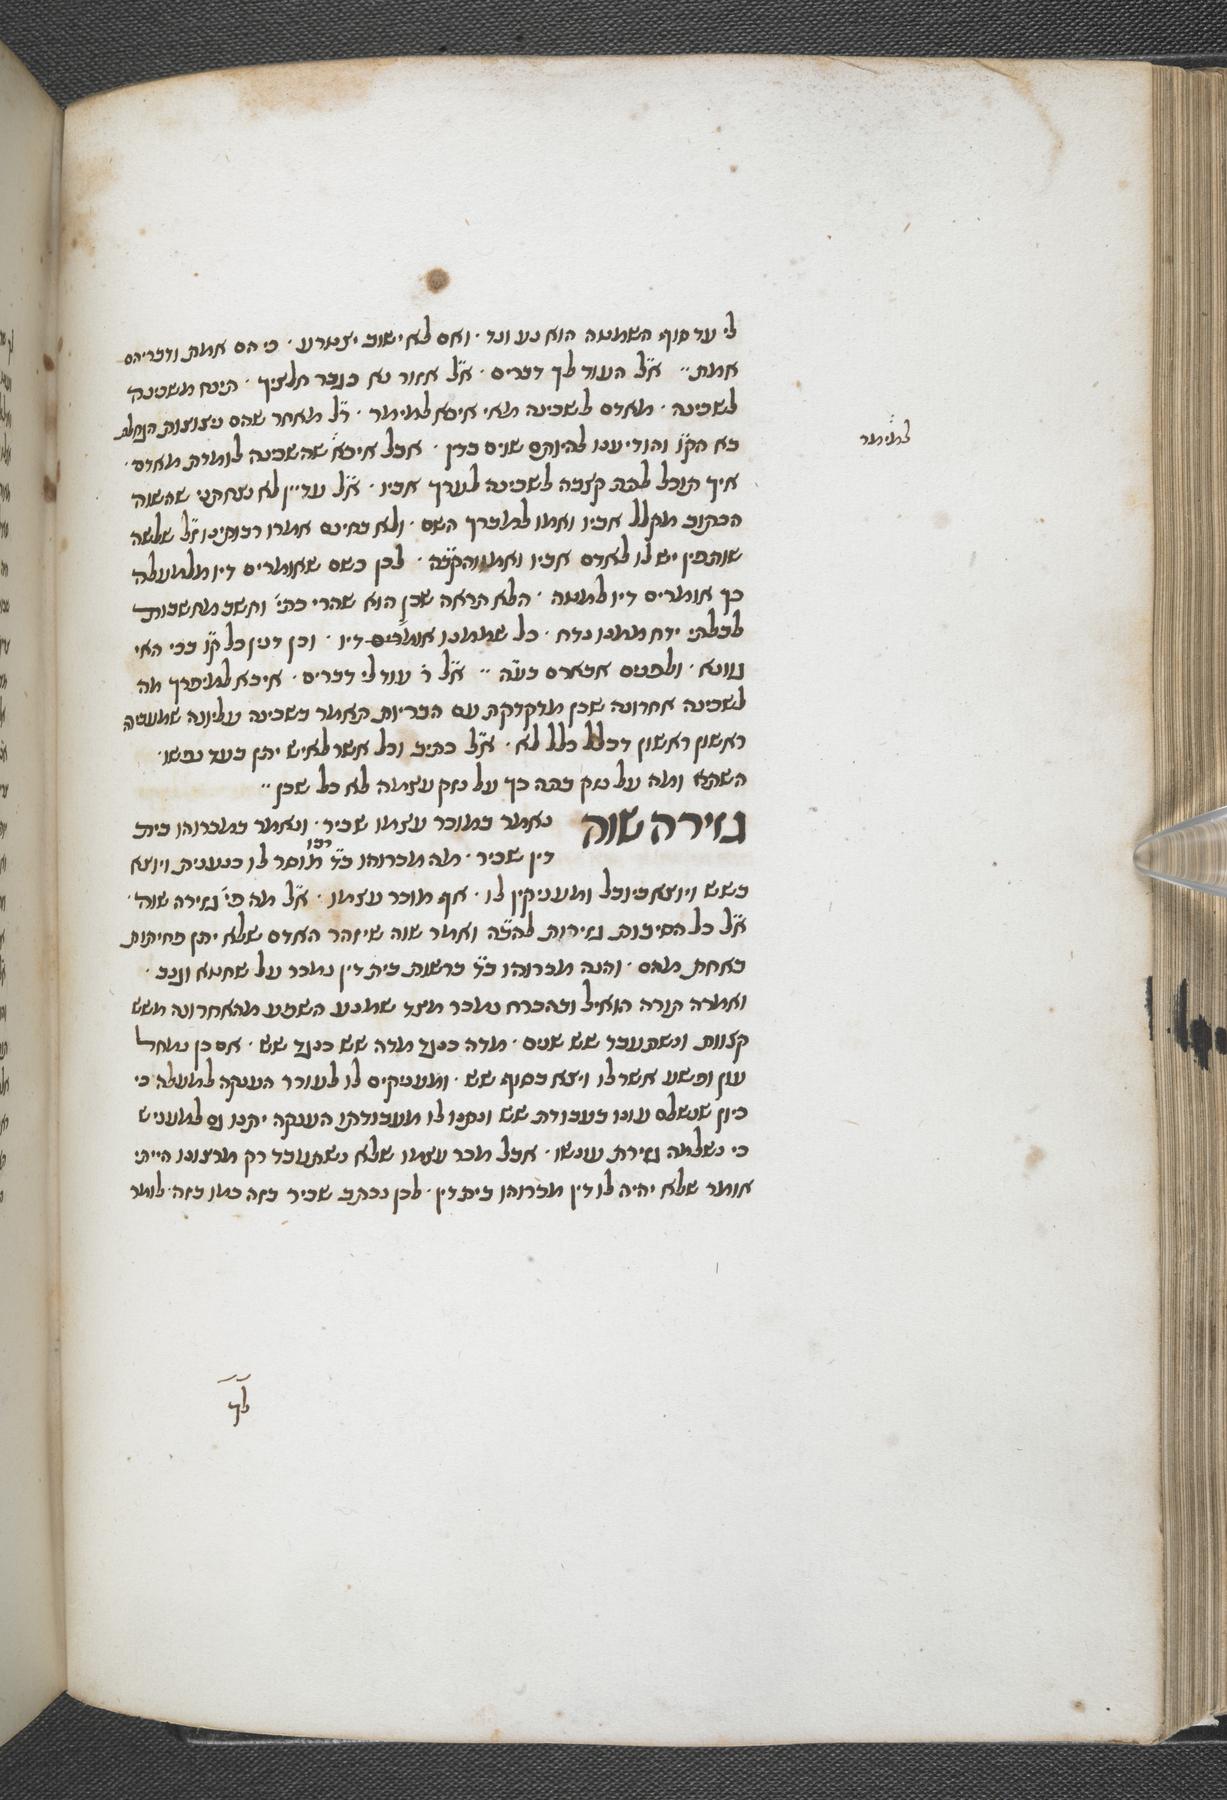 לי עד סוף השמטה הוא נע ונד · ואם לא ישוב יצטרע · כי הם אמת ודבריהם
אמת ·· א״ל העוד לך דברים · א״ל אזור נא כגבר חלציך · תינח משכינה
לשכינה · מאדם לשכינה מאי איכא למימר · ר״ל מאחר שהם ניצוצות
בא הק״ו והודיענו להיותם שוים בדין · אבל איכא שהשכינה לומדת מאדם ·
למימר
איך תוכל לתת קצבה לשכינה לערך אביו · א״ל עדיין לא נצחתני שהשוה
הכתוב מקלל אביו ואמו למברך השם · ולא בחינם אמרו רבותינו ז״ל שלשה
שותפין יש לו לאדם אביו ואמו והקב״ה · לכן כשם שאומרים דיו מלמעלה
כך אומרים דיו למטה · הלא תראה שכן הוא שהרי כתי׳ וחשב מחשבות
לבלתי ידח ממנו נדח · כל שממנו אומרים דיו · וכן דנין כל ק״ו כבי האי
גוונא · ולפנים אבארם בע״ה ·· א״ל ר׳ עוד לי דברים · איכא למיפרך מה
לשכינה אחרונה שכן מדקדקת עם הבריות תאמר בשכינה עליונה שמעביר
ראשון ראשון דכלל כלל לא · א״ל כתיב וכל אשר לאיש יתן בעד נפשו ·
השתא ומה על נזק בתה כך על נזק עצמה לא כל שכן ··
גזירה שוה נאמר במוכר עצמו שכיר · ונאמר במכרוהו בית
דין שכיר · מה מכרוהו ב״ד רבו מוסר לו כנענית ויוצא
בשש ויוצא ביובל ומעניקין לו · אף מוכר עצמו · א״ל מה פי׳ גזירה שוה ·
א״ל כל הסיבות גזירות להב״ה ואמר שוה שיזהר האדם שלא יתן פחיתות
באחת מהם · והנה מכרוהו ב״ד ברשות בית דין נמכר על שחטא וגנב ·
ואמרה תורה הואיל ובהכרח נמכר מצד שמנע השפע מהאחרונה משש
קצוות ונשתעבד שש שנים · מדה כנגד מדה שש כנגד שש · אם כן נמחל
עון ופשע אשר לו ויצא בסוף שש · ומעניקים לו לעורר הענקה למעלה כי
כיון שנשלם עונו בעבודת שש ונתנו לו מעבודתו הענקה יתנו גם למעניש
כי נשלמה גזירת עונשו · אבל מכר עצמו שלא נשתעבד רק מרצונו הייתי
אומר שלא יהיה לו דין מכרוהו בית דין · לכן נכתב שכיר בזה כמו בזה · לומר
לך